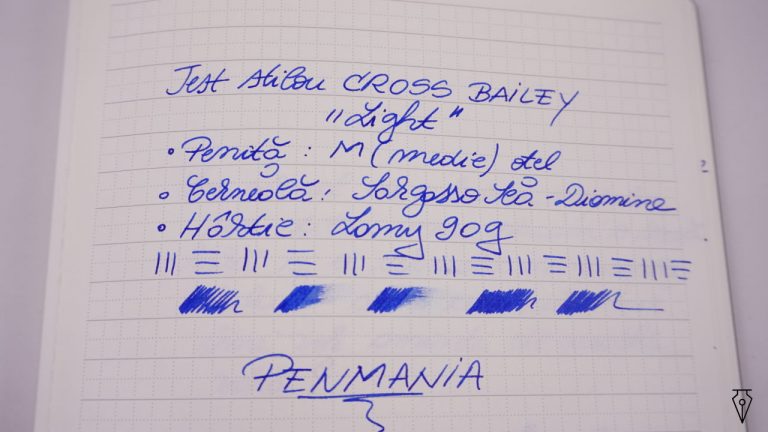 Test stilou CROSS BAILEY
"Light"
• Peniță : M (medie) oțel
• Cerneală : Sargasso Sea - Diamine
• Hârtie : Lamy 90g
PENMANIA